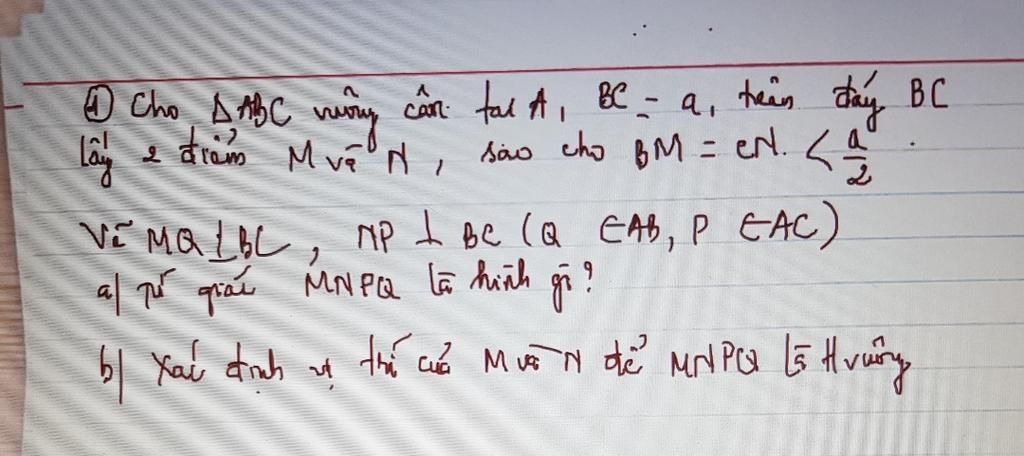 ① Cho ΔABC vuông cân tại A, BC = a, trên đáy BC
lấy 2 điểm M và N, sao cho BM = CN < a/2.
Vẽ MQ ⊥ BC, NP ⊥ BC (Q ∈ AB, P ∈ AC)
a) Tứ giác MNPQ là hình gì?
b) Xác định vị trí của M và N để MNPQ là H vuông